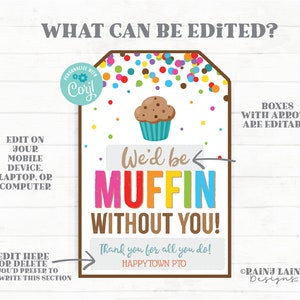 WHAT CAN BE EDITED?
PERSONALIZE WITH
Corjl
We'd be
MUFFIN
WITHOUT YOU!
Thank you for all you do!
HAPPYTOWN PTO
BOXES
WITH ARROW
ARE EDITAB
EDIT ON
YOUR
MOBILE
DEVICE,
LAPTOP, OR
COMPUTER
EDIT HERE
OR DELETE
OU'D PREFER TO
WRITE THIS SECTION
©RAINJ LAINE
Designs